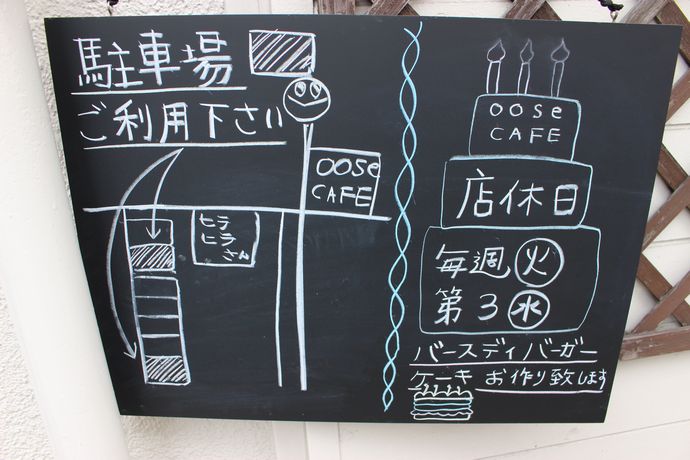 駐車場
ご利用下さい
oose
CAFE
ヒラ
ヒラ
さん
oose
CAFE
店休日
毎週火
第3水
バースディバーガー
ケーキ お作り致します